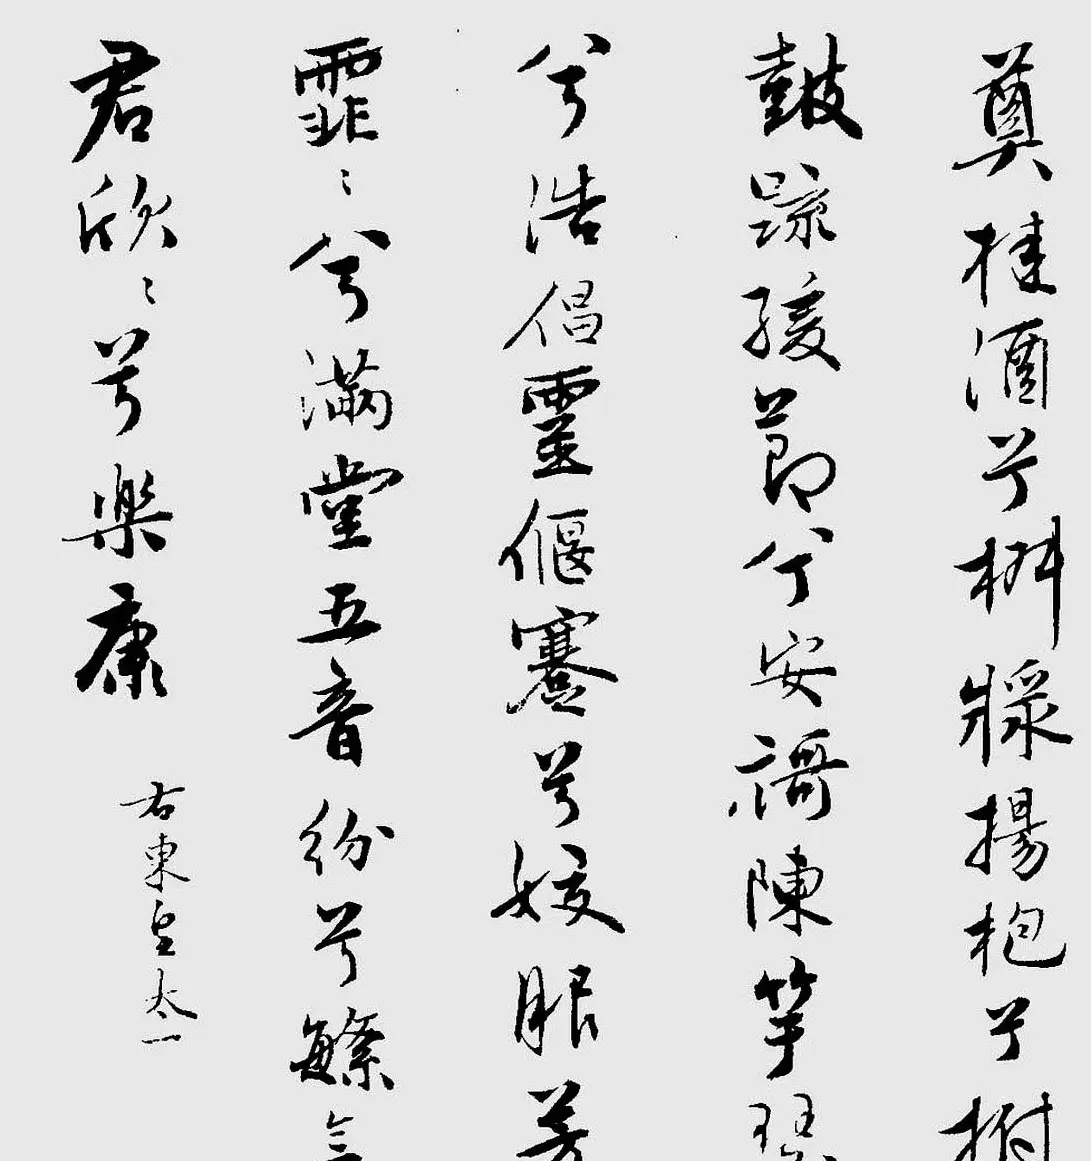 奠桂酒兮椒漿揚枹兮拊
鼓疏緩節兮安謌陳竽瑟
兮浩倡靈偃蹇兮姣服芳
霏〻兮滿堂五音紛兮繁會
君欣〻兮樂康
右東皇太一